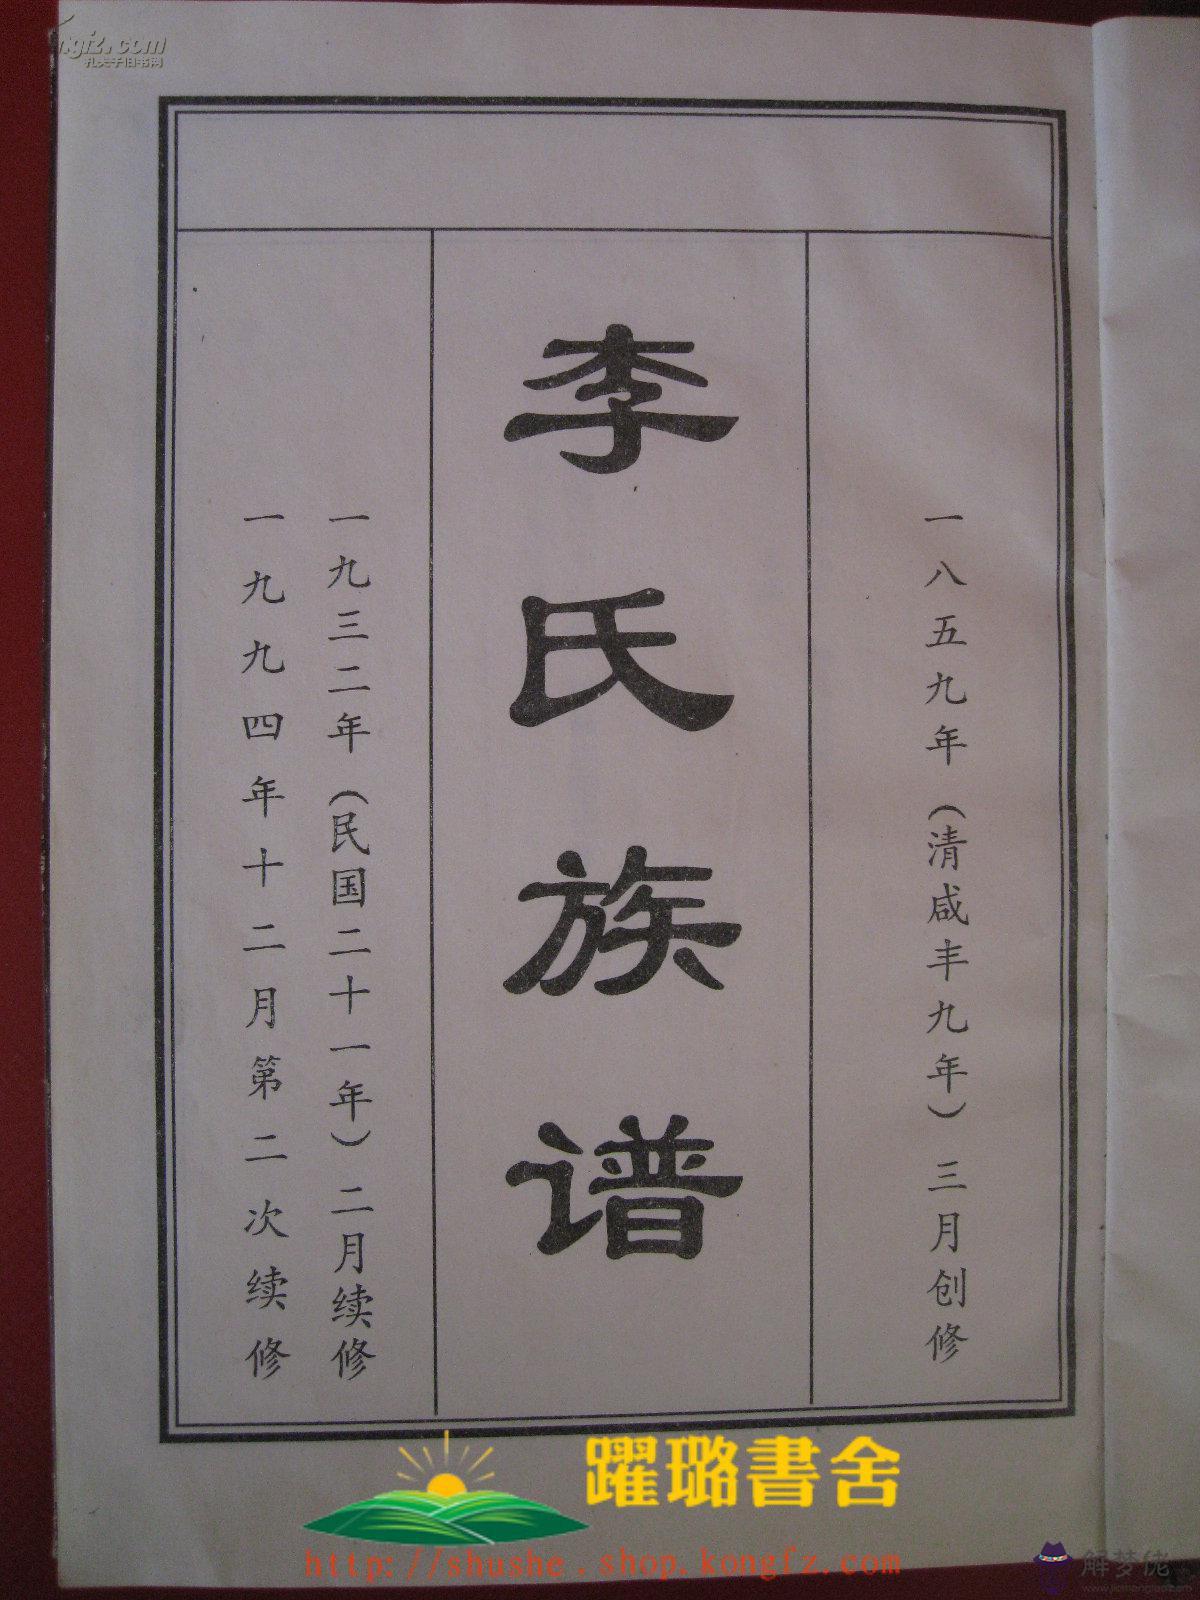 孔夫子旧书网
一八五九年（清咸丰九年）三月创修
李氏族谱
一九三二年（民国二十一年）二月续修
一九九四年十二月第二次续修
躍璐書舍
http://shushe.shop.kongfz.com
解梦佬